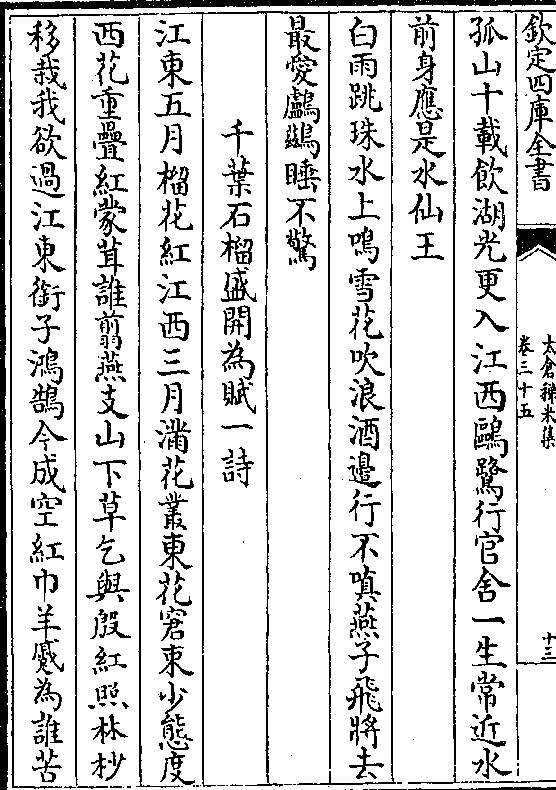 欽定四庫全書
太倉稊米集
卷三十五
十三
孤山十載飲湖光更入江西鷗鷺行官舍一生常近水
前身應是水仙王
白雨跳珠水上鳴雪花吹浪酒邊行不嗔燕子飛將去
最愛鸕鷀睡不驚
千葉石榴盛開為賦一詩
江東五月榴花紅江西三月滿花叢東花窘束少態度
西花重疊紅蒙茸誰翦燕支山下草乞與殷紅照林杪
移栽我欲過江東銜子鴻鵠今成空紅巾羊蹙為誰苦